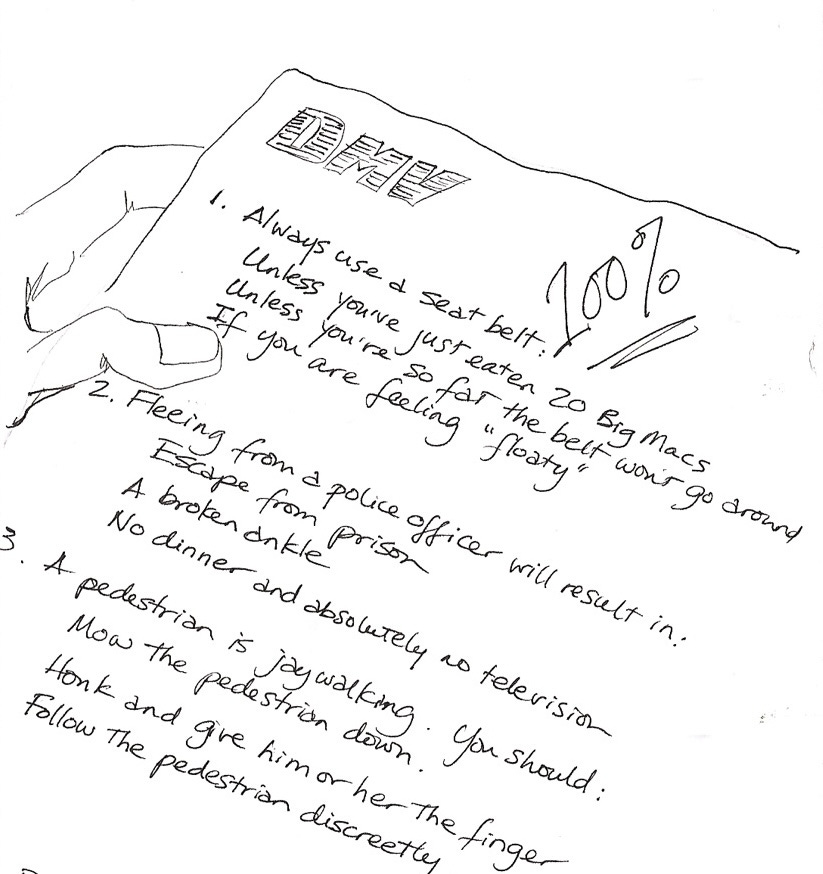 DMV
100%
1. Always use a seat belt:
Unless you've just eaten 20 Big Macs
Unless you're so fat the belt won't go around
If you are feeling "floaty"
2. Fleeing from a police officer will result in:
Escape from prison
A broken ankle
No dinner and absolutely no television
3. A pedestrian is jaywalking. You should:
Mow the pedestrian down.
Honk and give him or her the finger
Follow the pedestrian discreetly